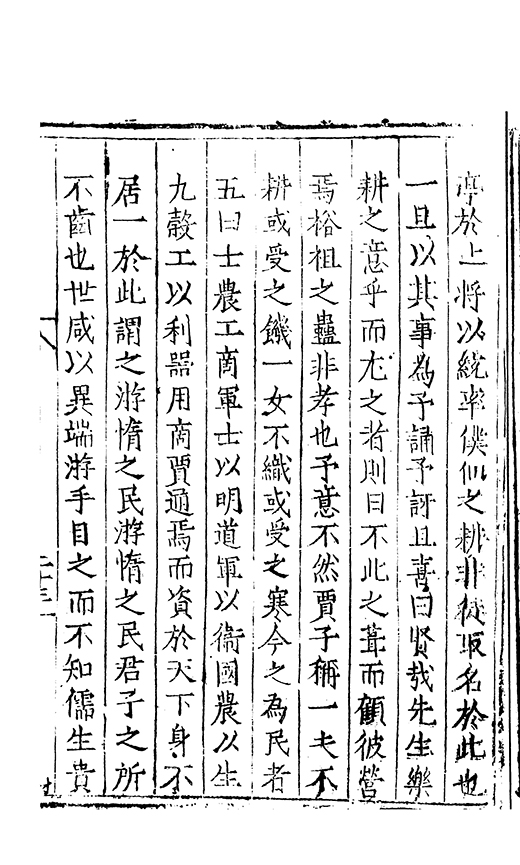 亭於上将以統率僕佃之耕非徒取名於此也
一旦以其事為予誦予訝且喜曰贤㢤先生樂
耕之意乎而尤之者則曰不此之葺而顧彼營
焉裕祖之蠱非孝也予意不然賈子稱一夫不
耕或受之饑一女不織或受之寒今之為民者
五曰士農工商軍士以明道軍以衞國農以生
九穀工以利器用商賈通焉而資於天下身不
居一於此謂之游惰之民游惰之民君子之所
不齒也世咸以異端游手目之而不知儒生貴
二十三